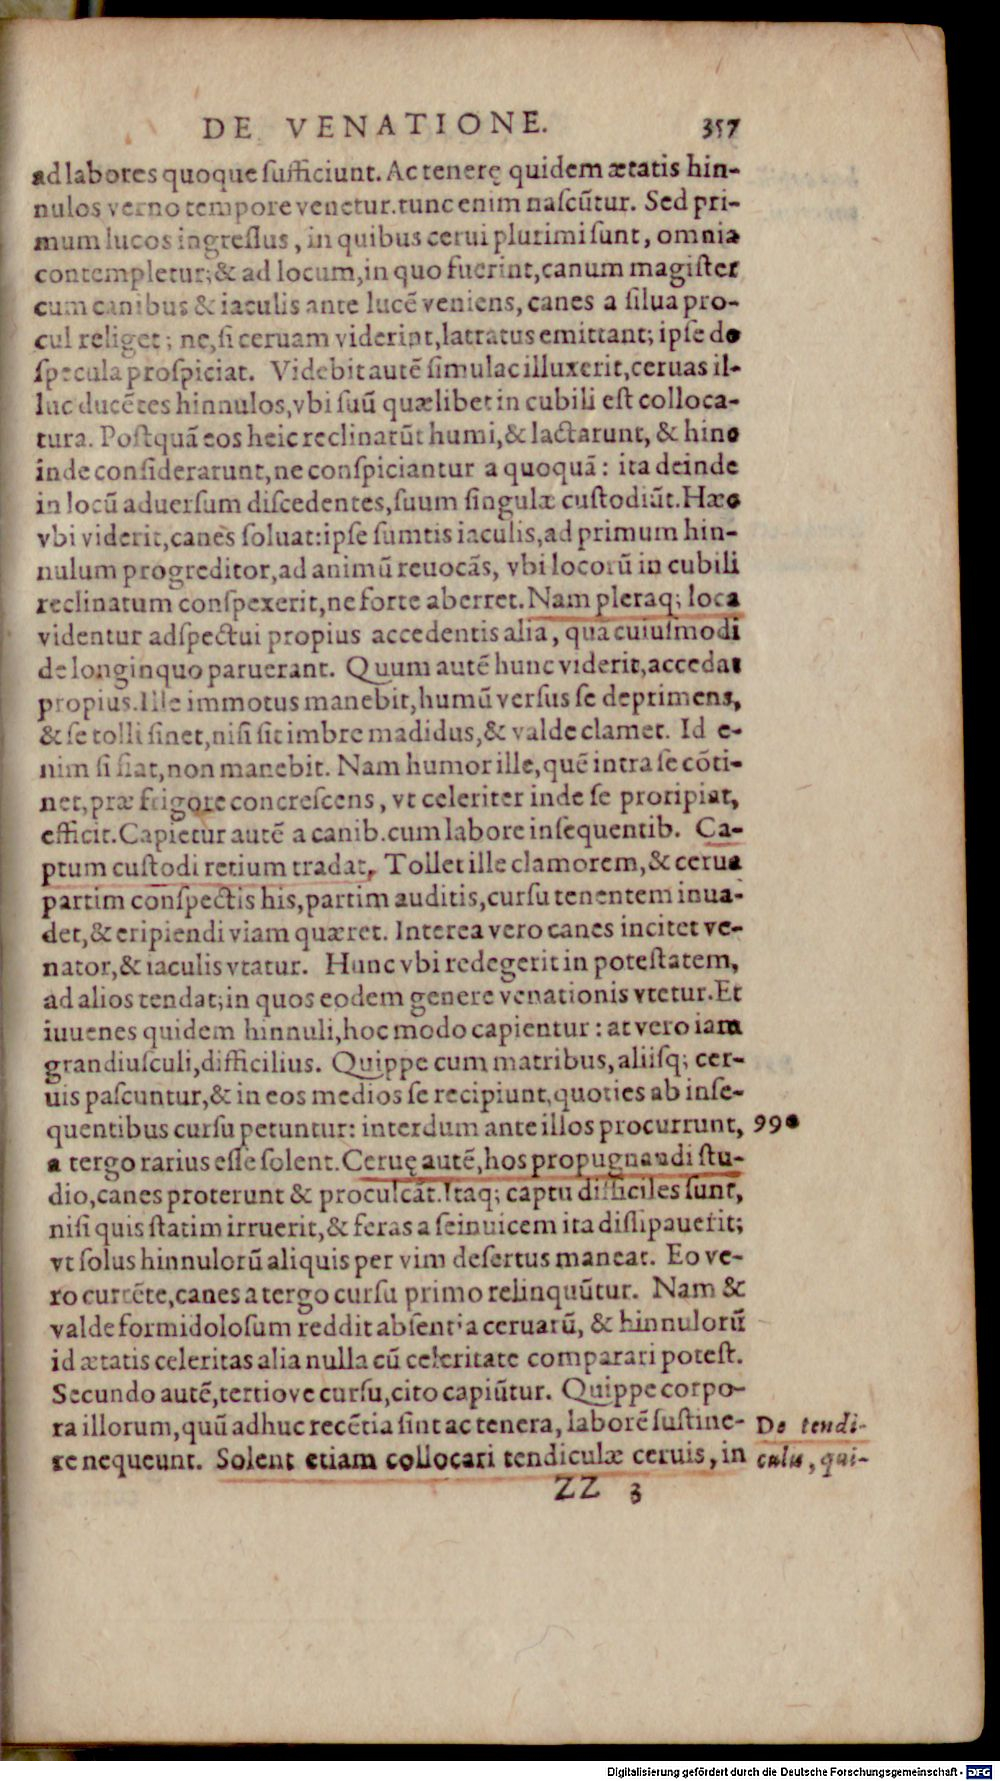 DE VENATIONE. 357
ad labores quoque sufficiunt. Ac tenerę quidem ætatis hin-
nulos verno tempore venetur. tunc enim nascũtur. Sed pri-
mum lucos ingressus, in quibus cerui plurimi sunt, omnia
contempletur; & ad locum, in quo fuerint, canum magister
cum canibus & iaculis ante lucẽ veniens, canes a silua pro-
cul religet; ne, si ceruam viderint, latratus emittant; ipse de
specula prospiciat. Videbit autẽ simulac illuxerit, ceruas il-
luc ducẽtes hinnulos, vbi suũ quælibet in cubili est colloca-
tura. Postquã eos heic reclinarũt humi, & lactarunt, & hinc
inde considerarunt, ne conspiciantur a quoquã: ita deinde
in locũ aduersum discedentes, suum singulæ custodiũt. Hæc
vbi viderit, canes soluat: ipse sumtis iaculis, ad primum hin-
nulum progreditor, ad animũ reuocãs, vbi locorũ in cubili
reclinatum conspexerit, ne forte aberret. Nam pleraq; loca
videntur adspectui propius accedentis alia, qua cuiusmodi
de longinquo paruerant. Quum autẽ hunc viderit, accedat
propius. Ille immotus manebit, humũ versus se deprimens,
& se tolli sinet, nisi sit imbre madidus, & valde clamet. Id e-
nim si fiat, non manebit. Nam humor ille, quẽ intra se cõti-
net, præ frigore concrescens, vt celeriter inde se proripiat,
efficit. Capietur autẽ a canib. cum labore insequentib. Ca-
ptum custodi retium tradat. Tollet ille clamorem, & cerua
partim conspectis his, partim auditis, cursu tenentem inua-
det, & eripiendi viam quæret. Interea vero canes incitet ve-
nator, & iaculis vtatur. Hunc vbi redegerit in potestatem,
ad alios tendat; in quos eodem genere venationis vtetur. Et
iuuenes quidem hinnuli, hoc modo capientur: at vero iam
grandiusculi, difficilius. Quippe cum matribus, aliisq; cer-
uis pascuntur, & in eos medios se recipiunt, quoties ab inse-
quentibus cursu petuntur: interdum ante illos procurrunt, 990
a tergo rarius esse solent. Ceruę autẽ, hos propugnandi stu-
dio, canes proterunt & proculcãt. Itaq; captu difficiles sunt,
nisi quis statim irruerit, & feras a seinuicem ita dissipauerit;
vt solus hinnulorũ aliquis per vim desertus maneat. Eo ve-
ro currẽte, canes a tergo cursu primo relinquũtur. Nam &
valde formidolosum reddit absentia ceruarũ, & hinnulorũ
id ætatis celeritas alia nulla cũ celeritate comparari potest.
Secundo autẽ, tertiove cursu, cito capiũtur. Quippe corpo-
ra illorum, quũ adhuc recẽtia sint ac tenera, laborẽ sustine-
re nequeunt. Solent etiam collocari tendiculæ ceruis, in
De tendi-
culis, qui-
ZZ 3
Digitalisierung gefördert durch die Deutsche Forschungsgemeinschaft - DFG